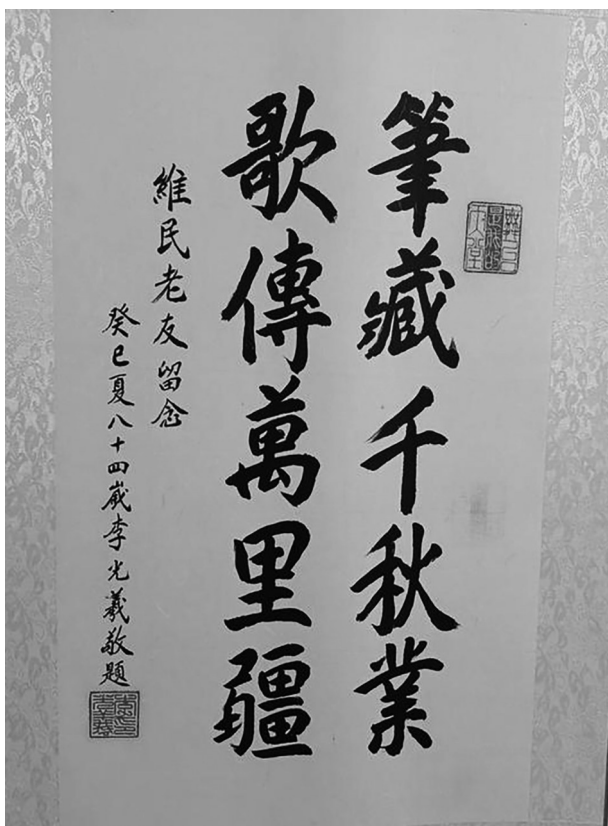 筆藏千秋業
歌傳萬里疆
維民老友留念
癸巳夏八十四嵗李光羲敬題